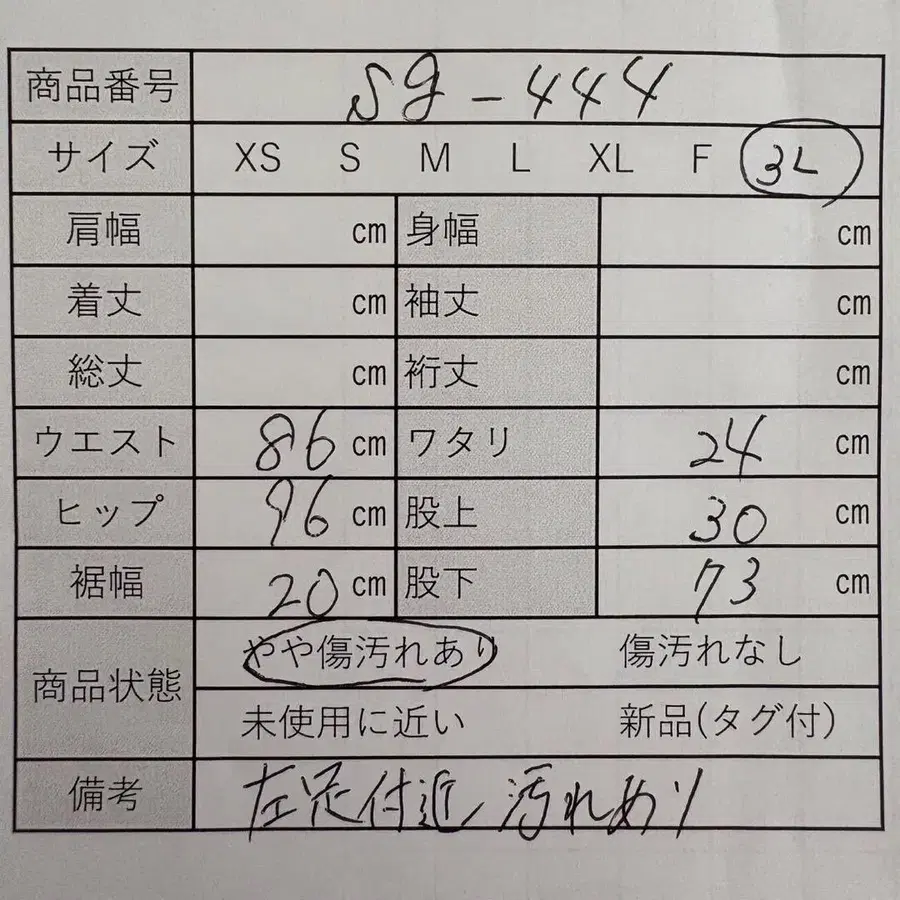 商品番号 sg-444
サイズ XS S M L XL F 3L
肩幅 cm 身幅 cm
着丈 cm 袖丈 cm
総丈 cm 裄丈 cm
ウエスト 86 cm ワタリ 24 cm
ヒップ 96 cm 股上 30 cm
裾幅 20 cm 股下 73 cm
商品状態 やや傷汚れあり 傷汚れなし
未使用に近い 新品(タグ付)
備考 左足付近 汚れあり